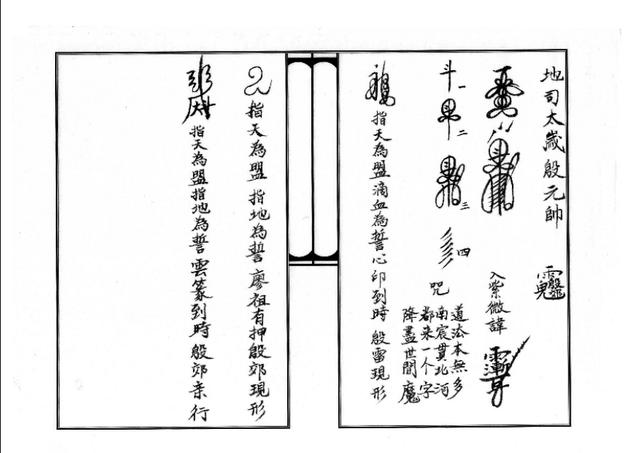 地司太歲殷元帥
入紫微諱
斗 一 二 三 四
咒
道法本無多
南宸貫北河
都来一个字
降盡世間魔
指天為盟滴血為誓心印到時殷雷現形
指天為盟指地為誓廖祖有押殷郊現形
指天為盟指地為誓雲篆到時殷郊亲行